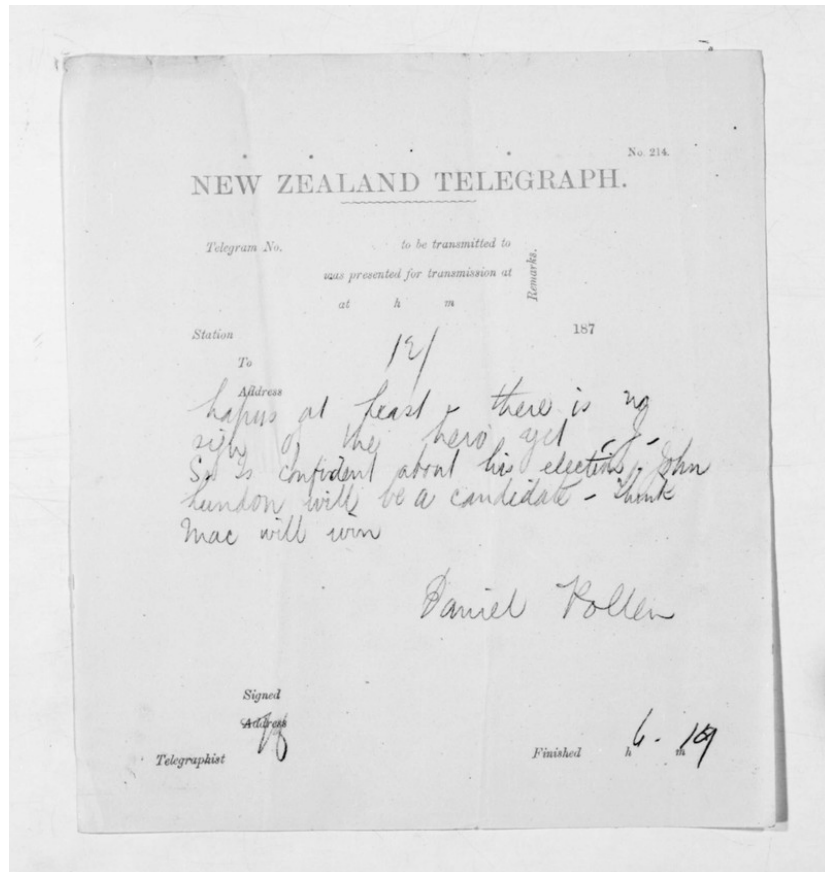 No. 214.
NEW ZEALAND TELEGRAPH.
Telegram No. to be transmitted to
was presented for transmission at
at h m
Remarks.
Station 187
To
Address
at least & there is no
sign of the hero yet
is confident about his election - John
Lundon will be a candidate - think
Mac will win
Daniel Pollen
Signed
Address
Telegraphist
Finished h 6 - m